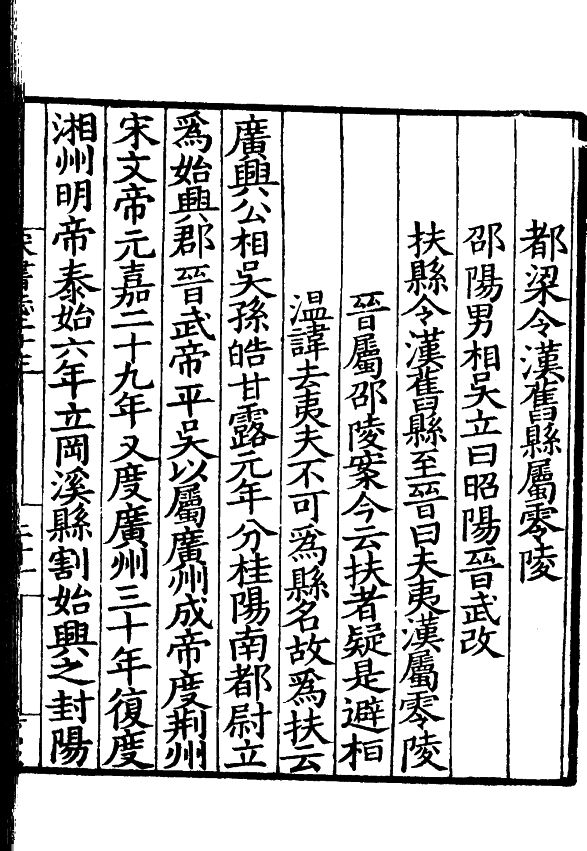 都梁令漢舊縣屬零陵
邵陽男相吳立曰昭陽晉武改
扶縣令漢舊縣至晉曰夫夷漢屬零陵
晉屬邵陵案今云扶者疑是避桓
溫諱去夷夫不可爲縣名故爲扶云
廣興公相吳孫皓甘露元年分桂陽南都尉立
爲始興郡晉武帝平吳以屬廣州成帝度荆州
宋文帝元嘉二十九年又度廣州三十年復度
湘州明帝泰始六年立岡溪縣割始興之封陽